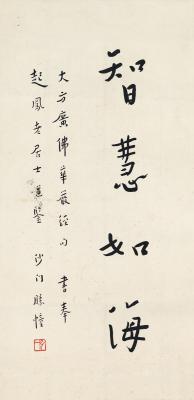 智慧如海
大方廣佛華嚴經句 書奉
起鳳老居士道鑒 沙門勝